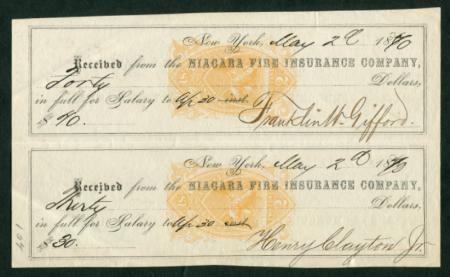 New York, May 2d 1870
Received from the NIAGARA FIRE INSURANCE COMPANY,
Forty Dollars,
in full for Salary to Apr 30 inst.
$40. Franklin W. Gifford.
New York, May 2d 1870
Received from the NIAGARA FIRE INSURANCE COMPANY,
Thirty Dollars,
in full for Salary to Apr 30 inst.
$30. Henry Clayton Jr.